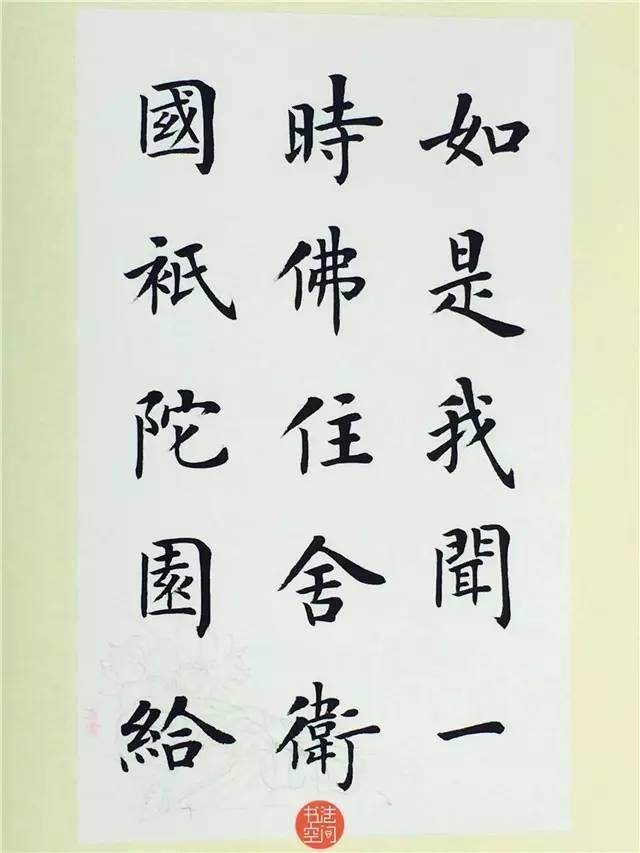 如是我聞一
時佛住舍衛
國祇陀園給
书法空间